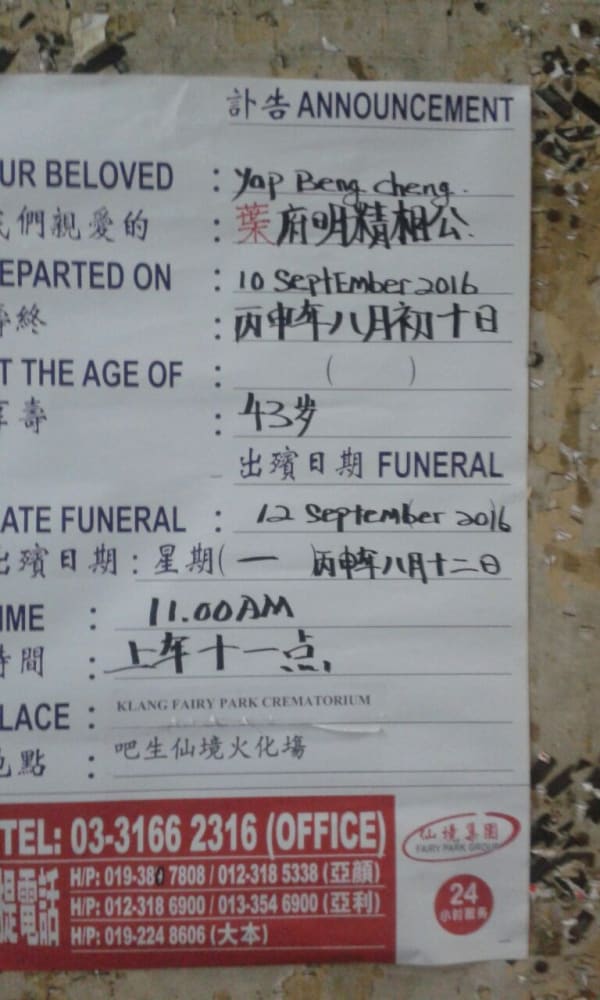 訃告 ANNOUNCEMENT
UR BELOVED : Yap Beng cheng.
們親愛的 : 葉府明精相公.
EPARTED ON : 10 SeptEmber 2016
終 : 丙申年八月初十日
T THE AGE OF : ( )
壽 : 43岁
出殯日期 FUNERAL
ATE FUNERAL : 12 September 2016
出殯日期 : 星期(一 丙申年八月十二日
IME : 11.00AM
時間 : 上午十一点,
LACE : KLANG FAIRY PARK CREMATORIUM
點 : 吧生仙境火化場
TEL: 03-3166 2316 (OFFICE)
電話
H/P: 019-380 7808 / 012-318 5338 (亞顏)
H/P: 012-318 6900 / 013-354 6900 (亞利)
H/P: 019-224 8606 (大本)
仙境集團
FAIRY PARK GROUP
24
小时服务